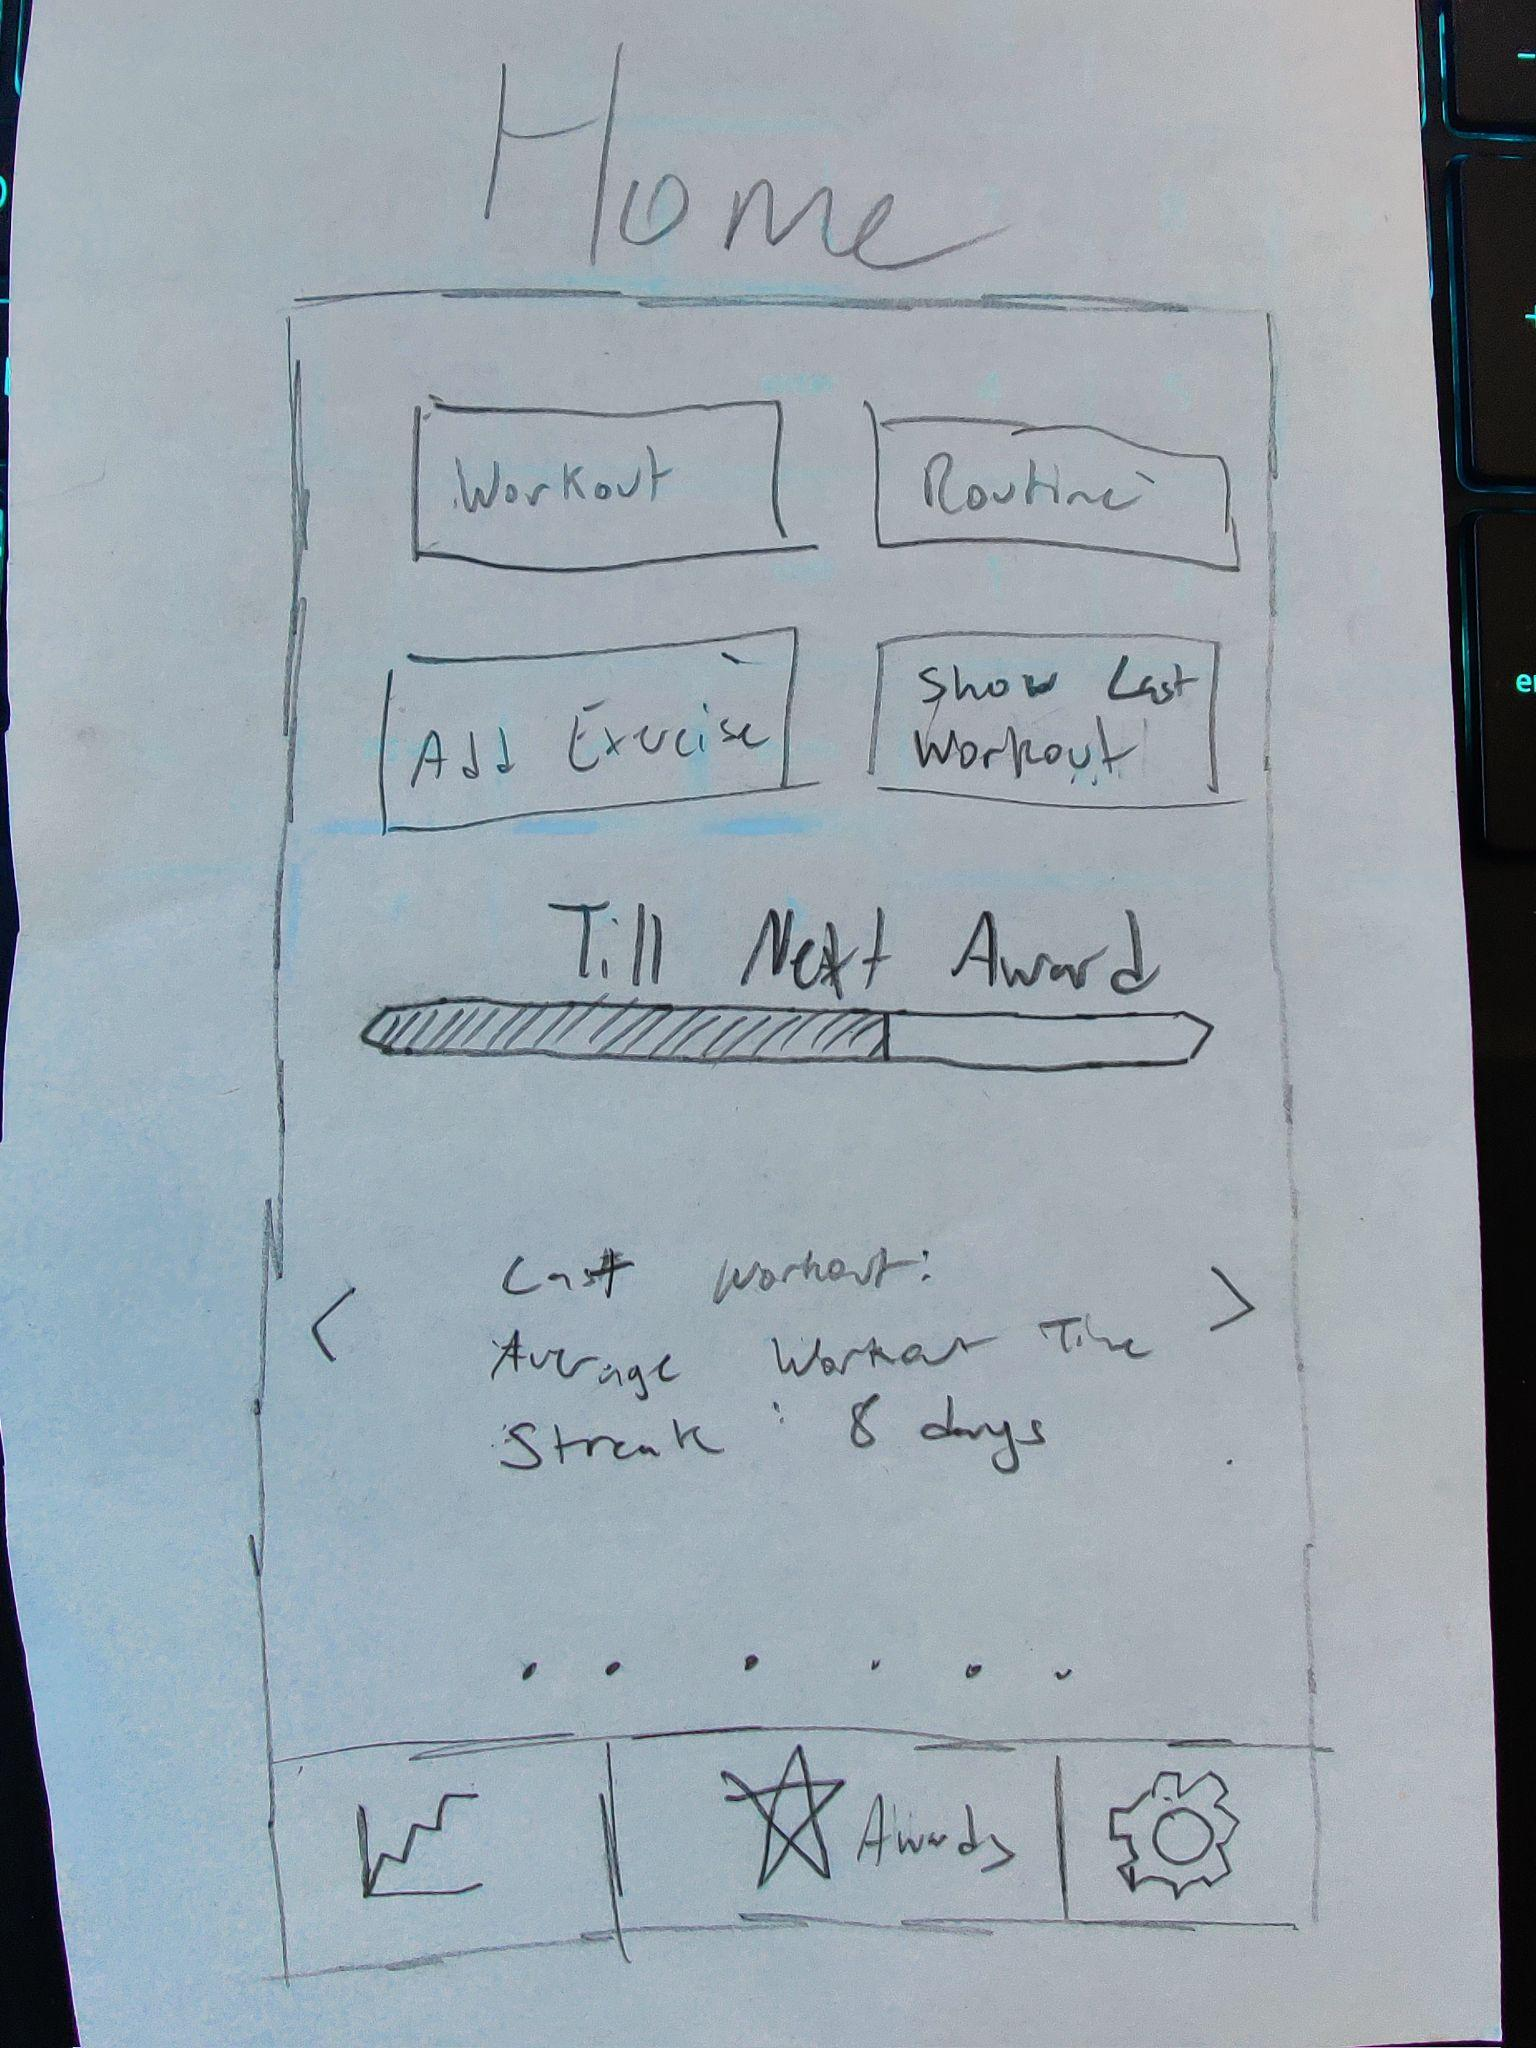 Home
Workout
Routine
Add Exercise
Show Last
Workout
Till Next Award
< Last Workout: >
Average Workout Time
Streak : 8 days
Awards